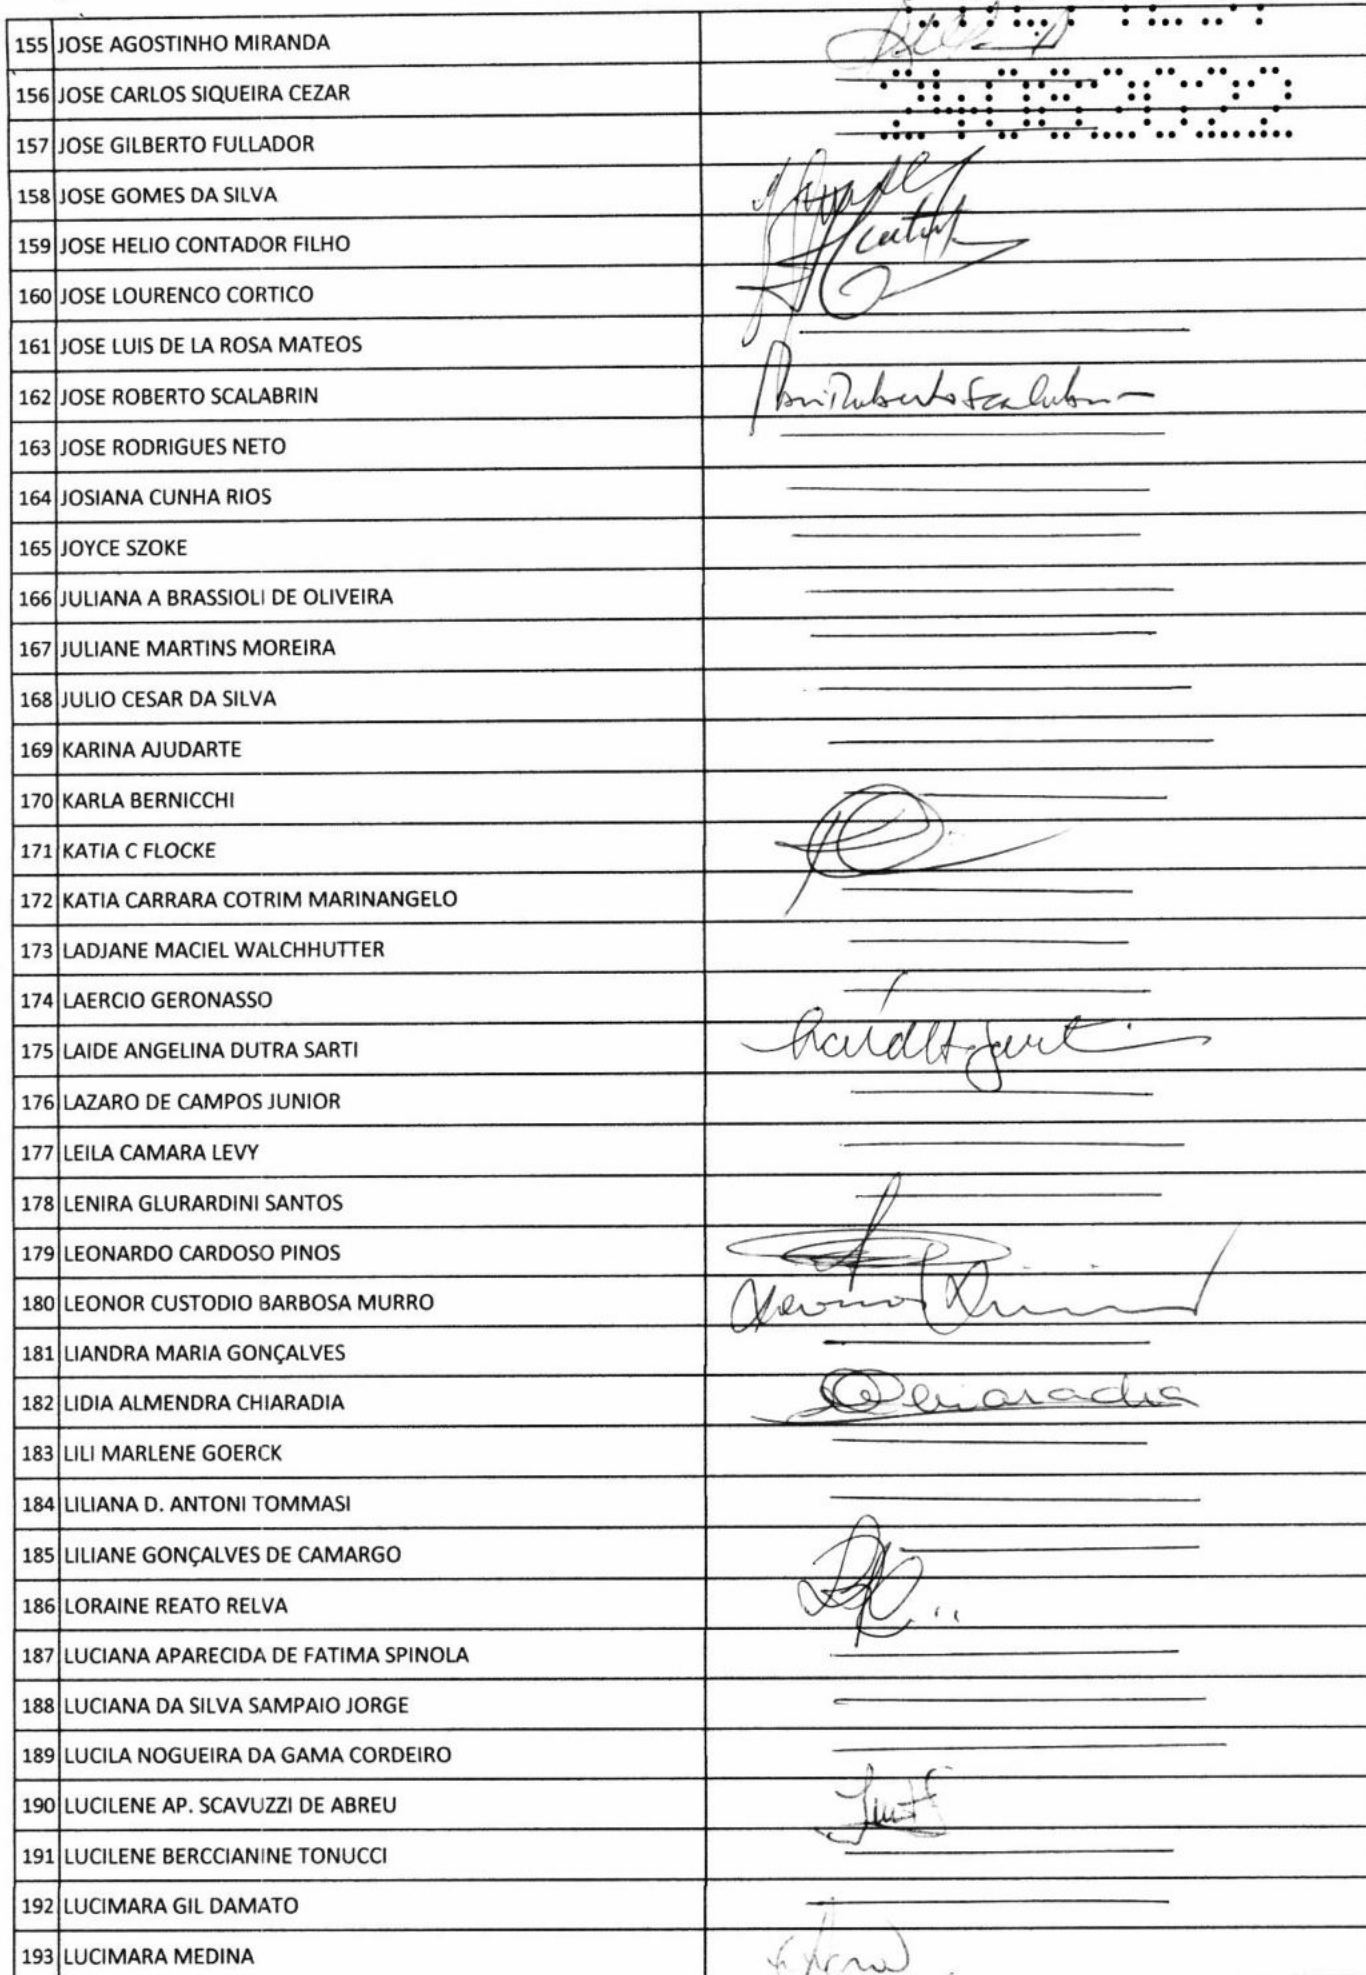 155 JOSE AGOSTINHO MIRANDA
24052022
156 JOSE CARLOS SIQUEIRA CEZAR
157 JOSE GILBERTO FULLADOR
158 JOSE GOMES DA SILVA
159 JOSE HELIO CONTADOR FILHO
160 JOSE LOURENCO CORTICO
161 JOSE LUIS DE LA ROSA MATEOS
162 JOSE ROBERTO SCALABRIN
163 JOSE RODRIGUES NETO
164 JOSIANA CUNHA RIOS
165 JOYCE SZOKE
166 JULIANA A BRASSIOLI DE OLIVEIRA
167 JULIANE MARTINS MOREIRA
168 JULIO CESAR DA SILVA
169 KARINA AJUDARTE
170 KARLA BERNICCHI
171 KATIA C FLOCKE
172 KATIA CARRARA COTRIM MARINANGELO
173 LADJANE MACIEL WALCHHUTTER
174 LAERCIO GERONASSO
175 LAIDE ANGELINA DUTRA SARTI
176 LAZARO DE CAMPOS JUNIOR
177 LEILA CAMARA LEVY
178 LENIRA GLURARDINI SANTOS
179 LEONARDO CARDOSO PINOS
180 LEONOR CUSTODIO BARBOSA MURRO
181 LIANDRA MARIA GONÇALVES
182 LIDIA ALMENDRA CHIARADIA Chiaradia
183 LILI MARLENE GOERCK
184 LILIANA D. ANTONI TOMMASI
185 LILIANE GONÇALVES DE CAMARGO
186 LORAINE REATO RELVA
187 LUCIANA APARECIDA DE FATIMA SPINOLA
188 LUCIANA DA SILVA SAMPAIO JORGE
189 LUCILA NOGUEIRA DA GAMA CORDEIRO
190 LUCILENE AP. SCAVUZZI DE ABREU
191 LUCILENE BERCCIANINE TONUCCI
192 LUCIMARA GIL DAMATO
193 LUCIMARA MEDINA